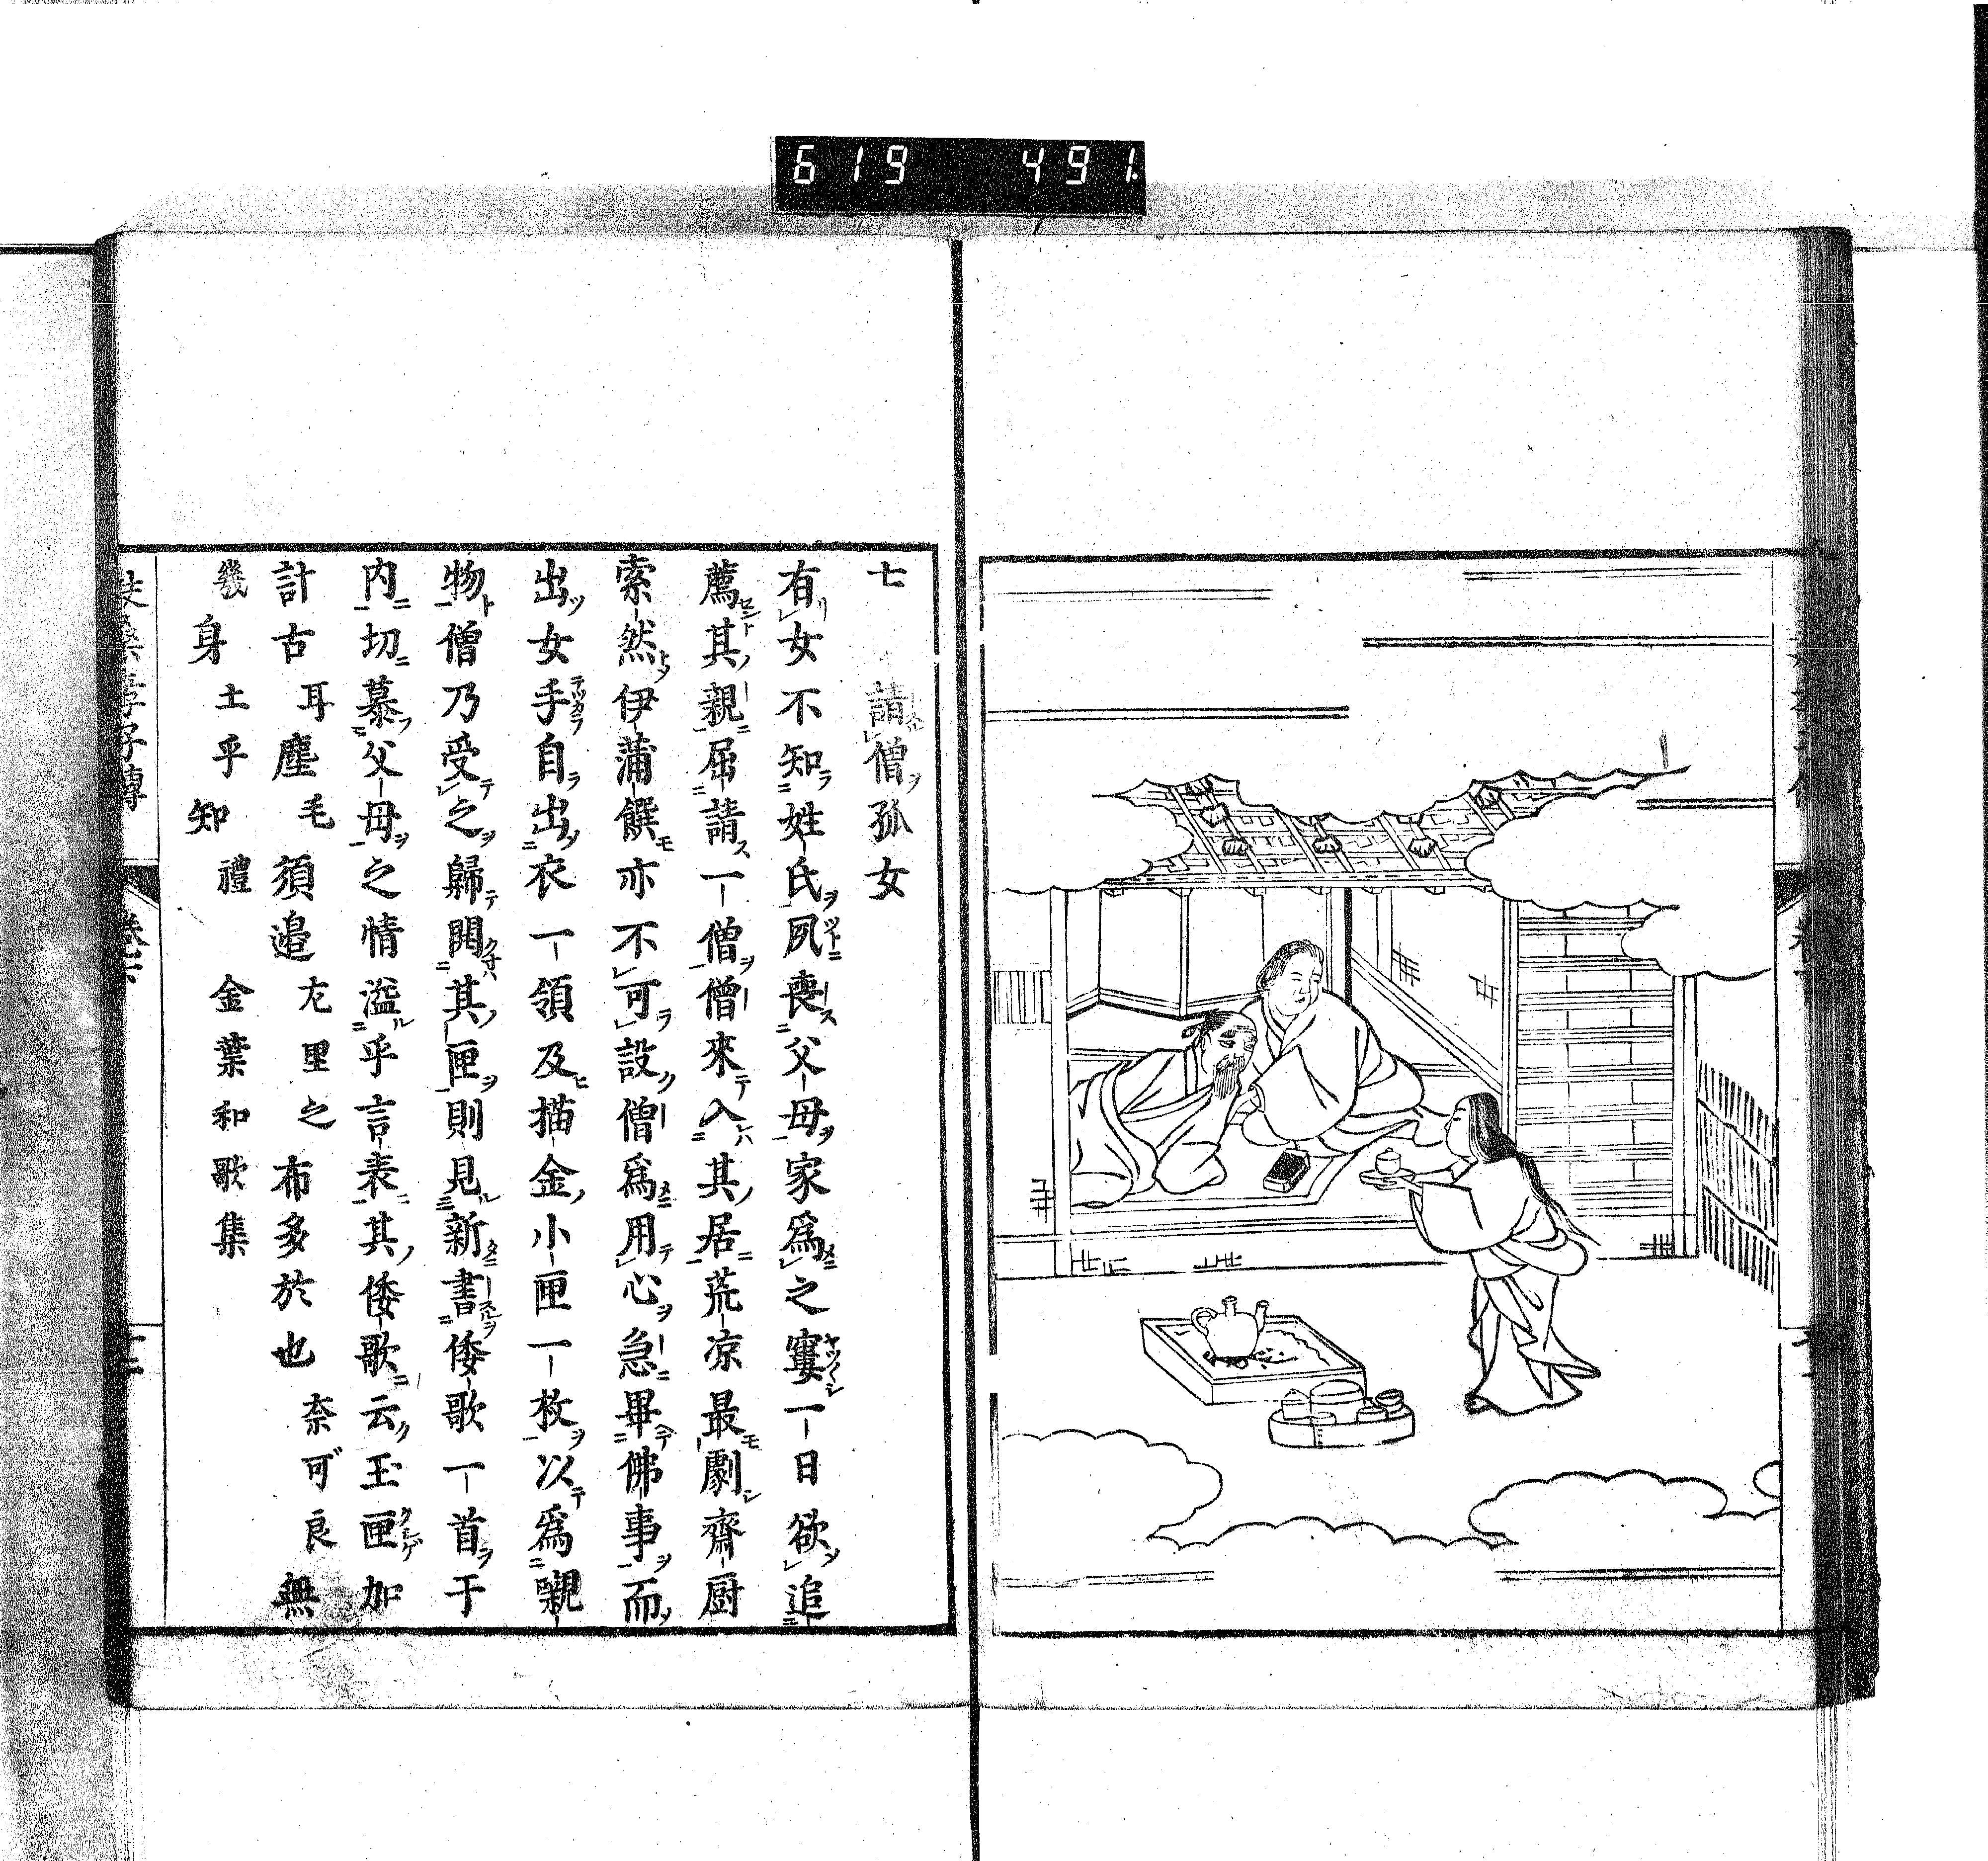 619 491
七 請僧孤女
有女不知姓氏夙喪父母家爲之窶一日欲追
薦其親屈請一僧僧來入其居荒凉最劇齋厨
索然伊蒲饌亦不可設僧爲用心急畢佛事而
出女手自出衣一領及描金小匣一枚以爲嚫
物僧乃受之歸開其匣則見新書倭歌一首于
内切慕父母之情溢乎言表其倭歌云玉匣加
計古耳塵毛須邉左里之布多於也奈可良無
幾身土乎知禮 金葉和歌集
扶桑孝子傳 卷下